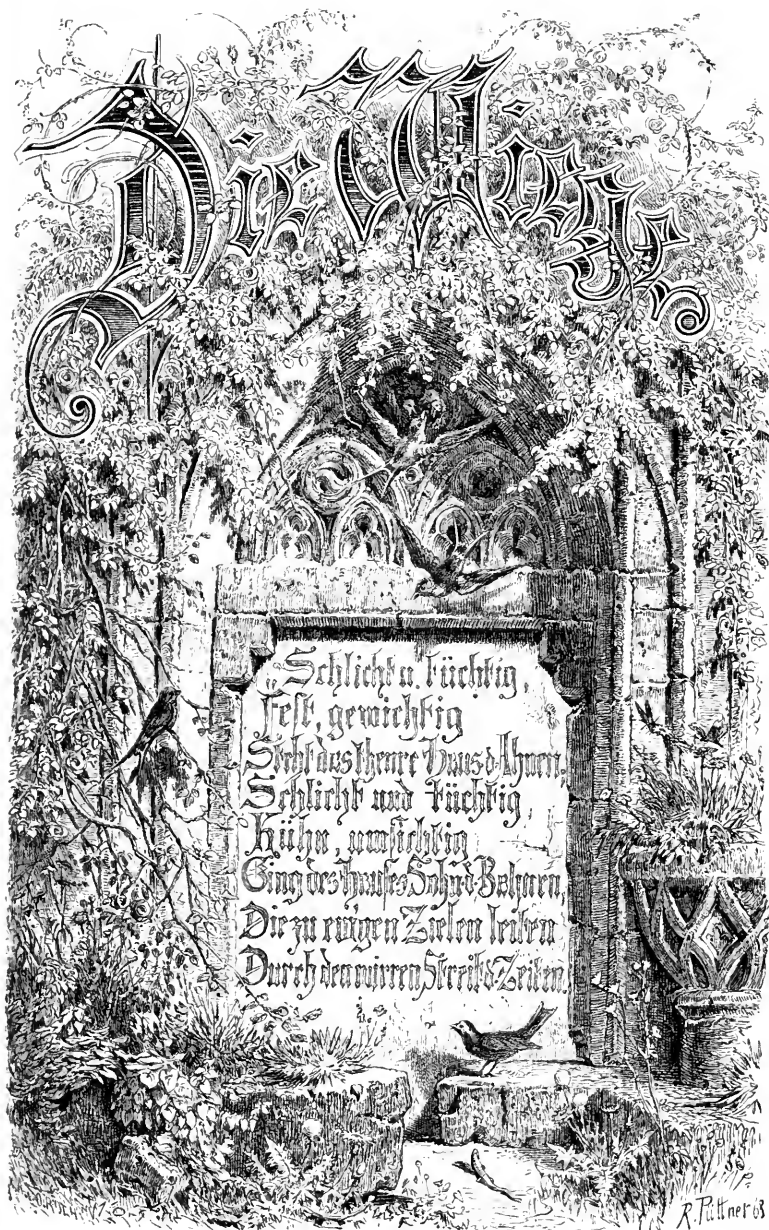 Die Wiege
„Schlicht u. tüchtig,
Fest, gewichtig
Steht das theure Haus d. Ahnen.
Schlicht und tüchtig,
Kühn, umsichtig
Ging des Hauses Sohn d. Bahnen
Die zu ewigen Zielen leiten
Durch den wirren Streit d. Zeiten.
R. Püttner 63